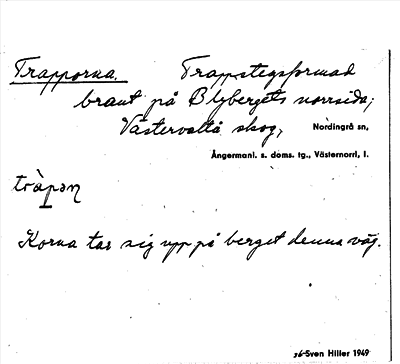 Trapporna. Trappstegsformad
brant på Blybergets norrsida;
Västervalta skog, Nordingrå sn,
Ångermanl. s. doms. tg., Västernorrl. l.
tràpən
Korna tar sig upp på berget denna väg.
Sven Hiller 1949